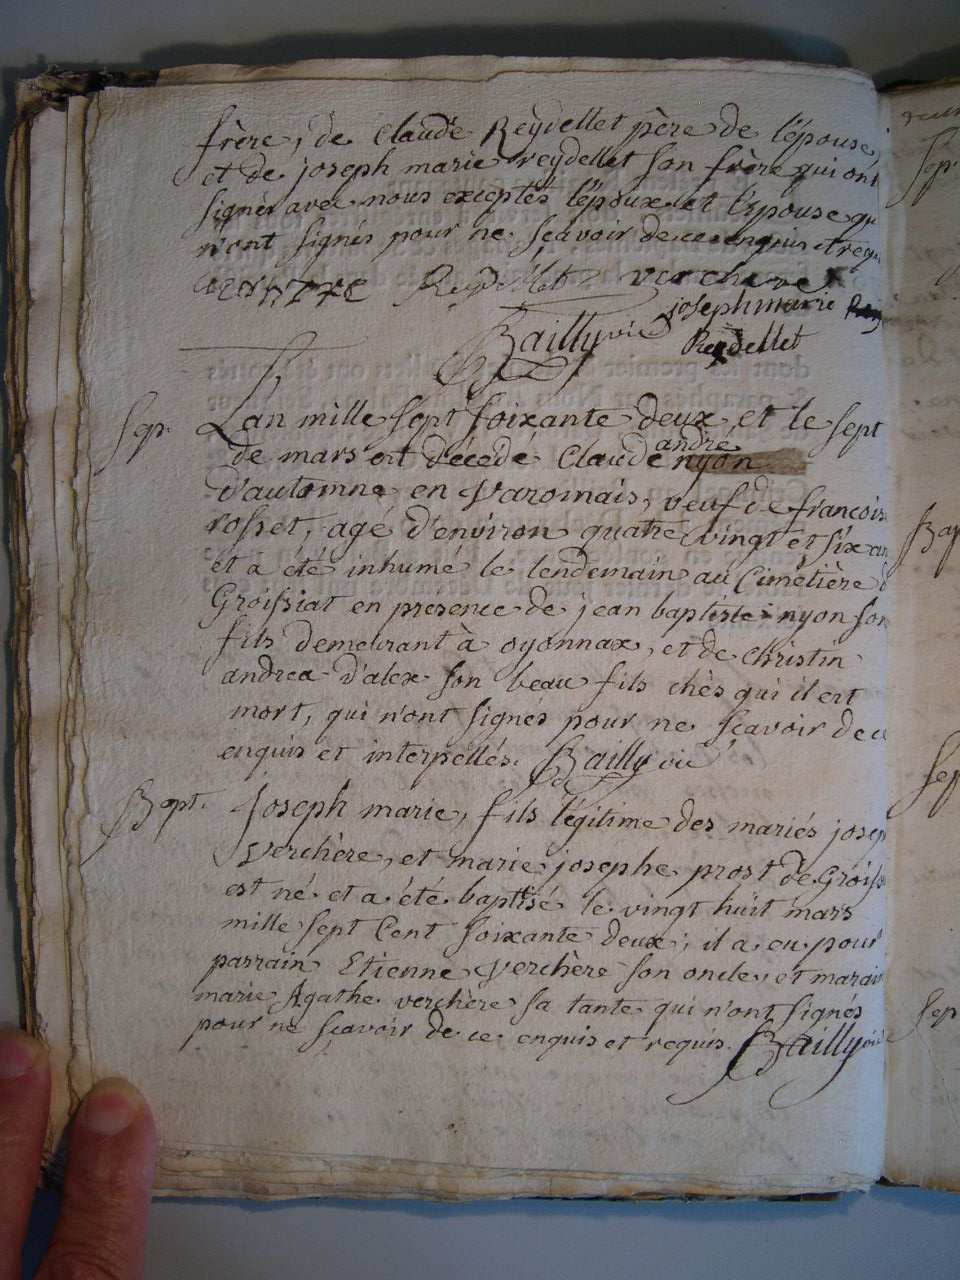 frère, de Claude Reydellet père de l'épouse,
et de joseph marie reydellet son frère qui ont
signés avec nous exceptés l'époux et l'épouse qu
n'ont signés pour ne sçavoir de ce enquis et requ
Reydellet verchere
josephmarie
Bailly vic Reydellet
Sepr. Lan mille sept soixante deux et le sept
andré
de mars est décedé Claude nyon
d'automne en Varomais, veuf de francois
rosset, agé d'environ quatre vingt et six an
et a été inhumé le lendemain au Cimetière d
Groissiat en presence de jean baptiste nyon son
fils demeurant à oyonnax, et de christin
andrea d'alex son beau fils chès qui il est
mort, qui n'ont signés pour ne sçavoir de ce
enquis et interpellés. Bailly vic
Bapt. Joseph marie, fils légitime des mariés josep
Verchère, et marie josephe prost de Groiss
est né et a été baptisé le vingt huit mars
mille sept Cent soixante deux; il a eu pour
parrain Etienne Verchère son oncle, et marai
marie Agathe verchère sa tante qui n'ont signés
pour ne sçavoir de ce enquis et requis. Bailly vic
Sepr
Bap
Sep
Sep